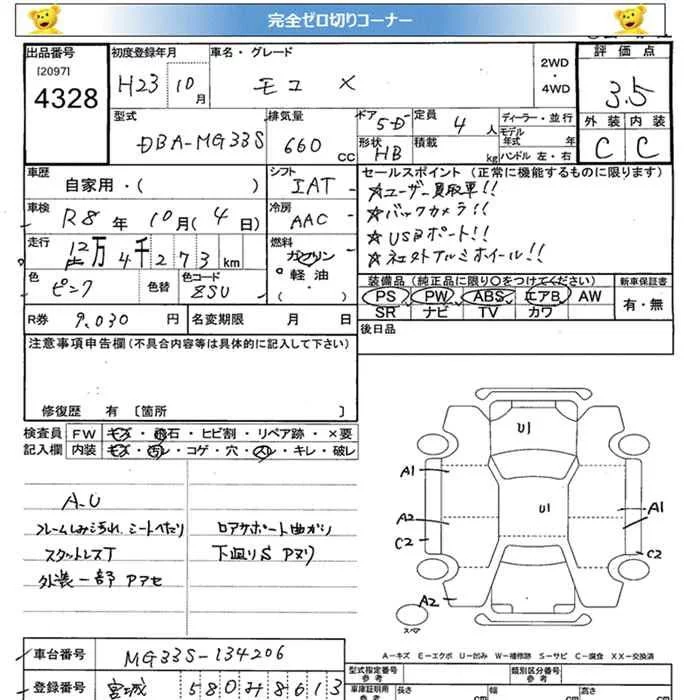 完全ゼロ切りコーナー
出品番号
[2097]
4328
初度登録年月
H23 10月
車名・グレード
モコ X
2WD
・
4WD
評価点
3.5
外装 内装
C C
型式
DBA-MG33S
排気量
660 CC
ドア 5D
形状 HB
定員 4 人
積載 kg
ディーラー・並行
モデル年式 年
ハンドル 左・右
車歴
自家用・( )
シフト
IAT
車検 R8年 10月(4日)
冷房
AAC
走行
12万4千273km
燃料
ガソリン
軽油
・( )
色 ピンク
色替
色コード ZSU
R券 9,030 円
名変期限 月 日
セールスポイント (正常に機能するものに限ります)
☆ユーザー買取車!!
☆バックカメラ!!
☆USBポート!!
☆社外アルミホイール!!
装備品 (純正品に限り○をつけてください)
PS PW ABS エアB AW
SR ナビ TV カワ
新車保証書
有・無
後日品
注意事項申告欄 (不具合内容等は具体的に記入して下さい)
修復歴 有 [箇所 ]
検査員記入欄
FW キズ・飛石・ヒビ割・リペア跡・×要
内装 キズ・汚レ・コゲ・穴・スレ・キレ・破レ
A-U
フレームしみ汚れ、シートへたり
スタットレスT
外装一部アアセ
ロアサポート曲がり
下廻りS アヌリ
U1
U1
A1
A2
C2
A2
A1
C2
スペア
A-キズ E-エクボ U-凹み W-補修跡 S-サビ C-腐食 XX-交換済
車台番号 MG33S-134206
登録番号 宮城 580み8613
型式指定番号
参考
類別区分番号
参考
車庫証明用
参考
長さ cm
幅 cm
高さ cm